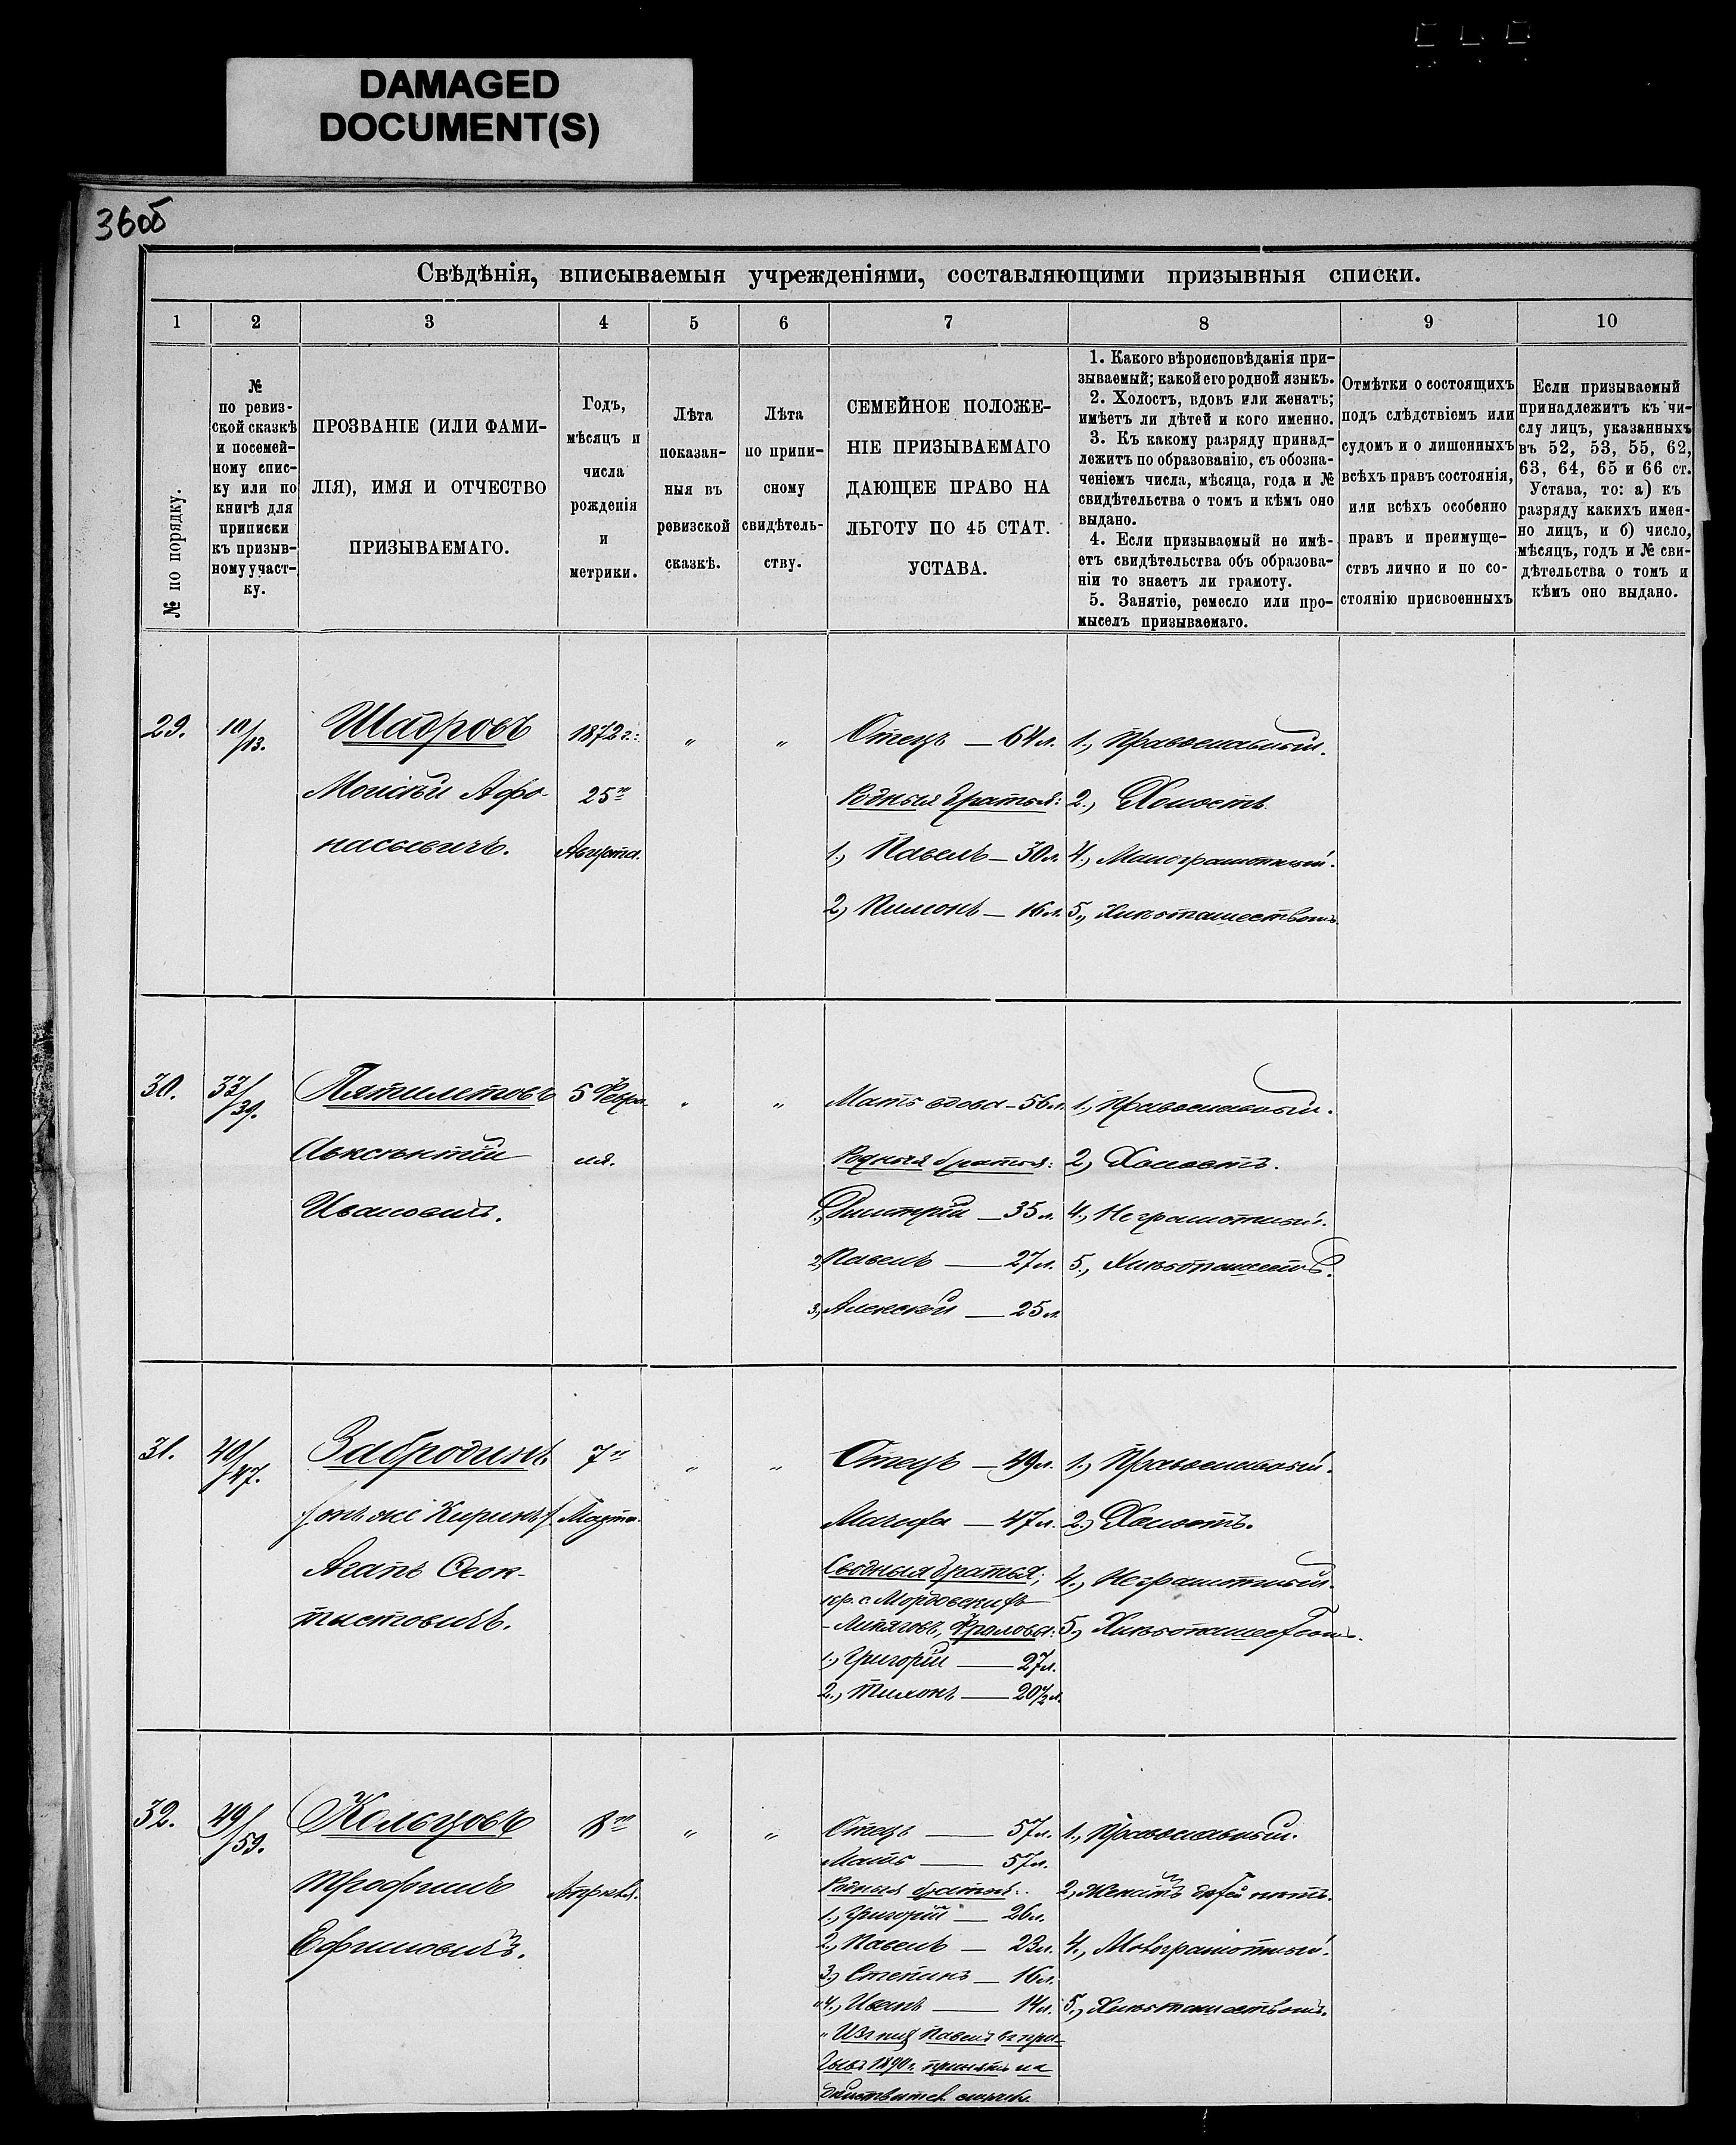 DAMAGED
DOCUMENT(S)
36об
Свѣдѣнія, вписываемыя учрежденіями, составляющими призывныя списки.
1 2 3 4 5 6 7 8 9 10
№ по порядку.
№
по ревиз-
ской сказкѣ
и посемей-
ному спис-
ку или по
книгѣ для
приписки
къ призыв-
ному участ-
ку.
ПРОЗВАНІЕ (ИЛИ ФАМИ-
ЛІЯ), ИМЯ И ОТЧЕСТВО
ПРИЗЫВАЕМАГО.
Годъ,
мѣсяцъ и
числа
рожденія
и
метрики.
Лѣта
показан-
ныя въ
ревизской
сказкѣ.
Лѣта
по припи-
сному
свидѣтель-
ству.
СЕМЕЙНОЕ ПОЛОЖЕ-
НІЕ ПРИЗЫВАЕМАГО
ДАЮЩЕЕ ПРАВО НА
ЛЬГОТУ ПО 45 СТАТ.
УСТАВА.
1. Какого вѣроисповѣданія при-
зываемый; какой его родной языкъ.
2. Холостъ, вдовъ или женатъ;
имѣетъ ли дѣтей и кого именно.
3. Къ какому разряду принад-
лежитъ по образованію, съ обозна-
ченіемъ числа, мѣсяца, года и №
свидѣтельства о томъ и кѣмъ оно
выдано.
4. Если призываемый не имѣ-
етъ свидѣтельства объ образова-
ніи то знаетъ ли грамоту.
5. Занятіе, ремесло или про-
мыселъ призываемаго.
Отмѣтки о состоящихъ
подъ слѣдствіемъ или
судомъ и о лишенныхъ
всѣхъ правъ состоянія,
или всѣхъ особенно
правъ и преимуще-
ствъ лично и по со-
стоянію присвоенныхъ
Если призываемый
принадлежитъ къ чи-
слу лицъ, указанныхъ
въ 52, 53, 55, 62,
63, 64, 65 и 66 ст.
Устава, то: а) къ
разряду какихъ имен-
но лицъ, и б) число,
мѣсяцъ, годъ и № сви-
дѣтельства о томъ и
кѣмъ оно выдано.
29.
10/13.
Шадровъ
Моисѣй Афо-
насьевичъ.
1872 г.:
25го
Августа.
"
"
Отецъ — 64 л.
Родныя братья:
1, Павелъ — 30 л.
2, Пимонъ — 16 л.
1., Православный.
2., Холостъ.
4., Малограмотный.
5., Хлѣбопашествомъ
30.
Пятилетовъ
Авксѣнтій
Ивановичъ.
5 Февра-
ля.
"
"
Мать вдова — 56 л.
Родныя братья:
1, Дмитрій — 35 л.
2, Павелъ — 27 л.
3, Алексѣй — 25 л.
1., Православный.
2, Холостъ.
4., Неграмотный.
5., Хлѣбопашеств.
31.
40/47.
Забродинъ
/онъ же Киринъ/
Агапъ Феок-
тыстовичъ.
7го
Марта.
"
"
Отецъ — 49 л.
Мачиха — 47 л.
Сводныя братья;
кр. с. Мордовскихъ
Фроловы:
1., Григорій — 27 л.
2., Тихонъ — 20½ л.
1., Православный.
2., Холостъ.
4., Неграмотный.
5., Хлѣбопашествомъ.
32.
49/59.
Кольцовъ
Трофимъ
Ефимовичъ.
8го
Апрѣля.
"
"
Отецъ — 57 л.
Мать — 57 л.
Родныя братья:
1., Григорій — 26 л.
2., Павелъ — 23 л.
3, Степанъ — 16 л.
4., Иванъ — 14 л.
" Изъ нихъ Павелъ въ при-
зывъ 1890 г. принятъ на
дѣйствител. службу.
1., Православный.
2, Женатъ дѣтей нѣтъ.
4., Малограмотный.
5., Хлѣбопашествомъ.